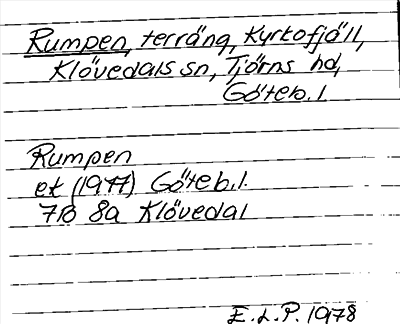 Rumpen, terräng, Kyrkofjäll,
Klövedals sn, Tjörns hd,
Göteb. l.
Rumpen
ek (1977) Göteb. l.
7B 8a Klövedal
E. L. P. 1978